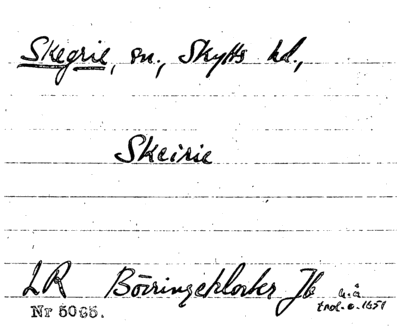 Skegrie, sn., Skytts hd.,
Skeirie
LR Börringekloster Jb u.å
Nr 5095. trol. o. 1651